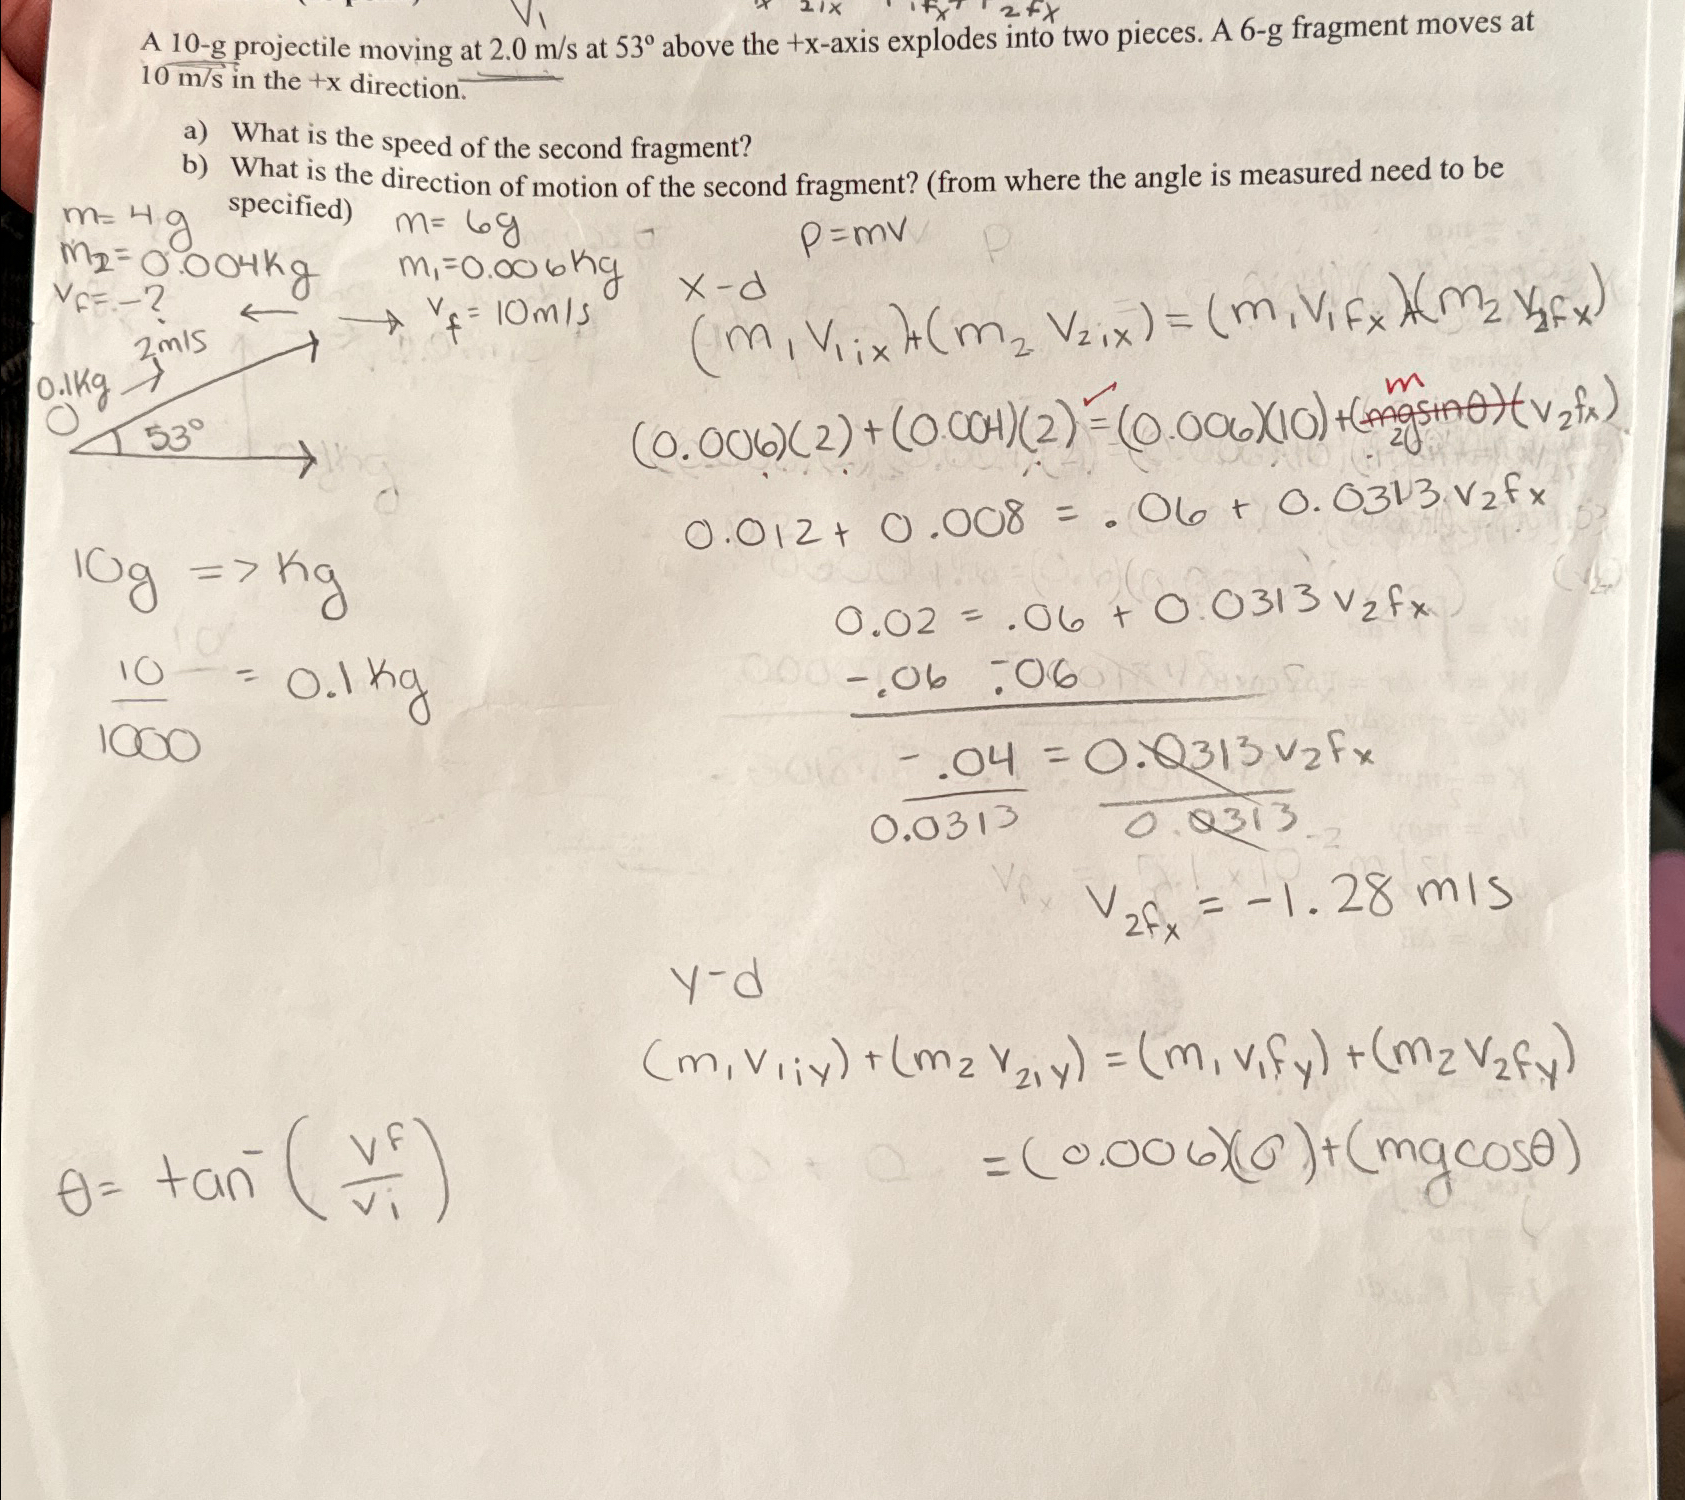 V₁
21x 1fx + 2fx
A 10-g projectile moving at 2.0 m/s at 53° above the +x-axis explodes into two pieces. A 6-g fragment moves at
10 m/s in the +x direction.
a) What is the speed of the second fragment?
b) What is the direction of motion of the second fragment? (from where the angle is measured need to be
specified)
m= 4g
m₂=0.004kg
vf=-?
m= 6g
m₁=0.006kg
vf= 10m/s
2m/s
0.1kg
53°
10g => kg
10/1000 = 0.1 kg
θ= tan⁻(vf/vi)
p=mv
x-d
(m₁ v₁ix)+(m₂ v₂ix)=(m₁v₁fx)+(m₂ v₂fx)
m
(0.006)(2)+(0.004)(2)=(0.006)(10)+(mgsinθ)(v₂fx)
2g
0.012+ 0.008 = .06 + 0.0313 v₂fx
0.02 = .06 + 0.0313 v₂fx
-.06 -.06
-.04 = 0.0313 v₂fx
0.0313 0.0313
v₂fx = -1.28 m/s
y-d
(m₁v₁iy)+(m₂v₂iy)=(m₁v₁fy)+(m₂v₂fy)
=(0.006)(0)+(mgcosθ)